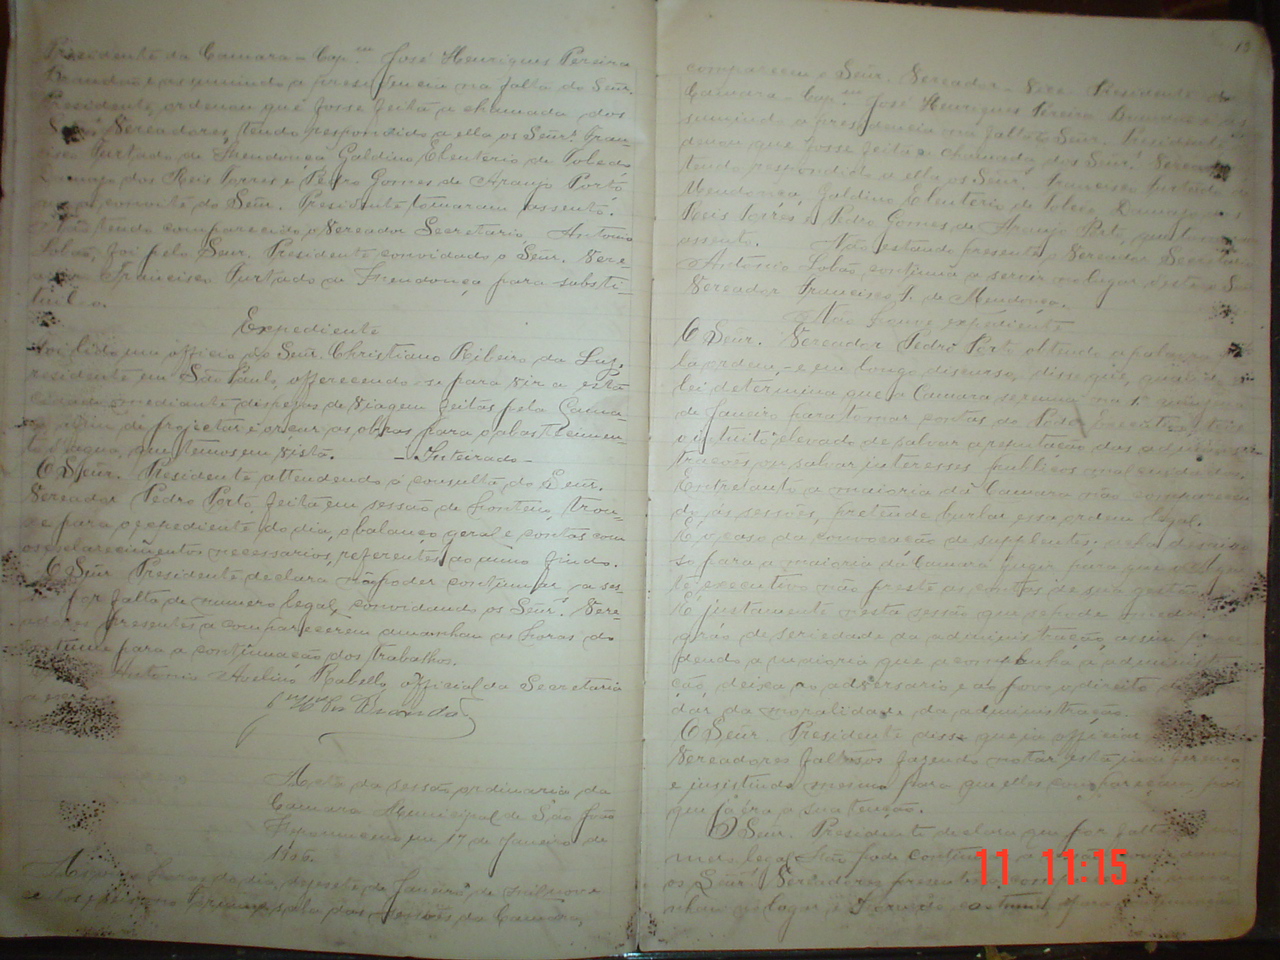 Presidente da Camara - Cap.m José Henriques Pereira
Brandão e assumindo a presidencia na falta do Señr.
Presidente, ordenou que fosse feita a chamada dos
Vereadores, tendo respondido a ella os Señr.s Fran-
cisco Furtado de Mendonça Galdino Eleuterio de Toledo
Damaso dos Reis Torres e Pedro Gomes de Araujo Porto
convite do Señr. Presidente tomaram assento.
Não tendo comparecido o Vereador Secretario Antonio
Lobão, foi pelo Senr. Presidente convidado o Senr. Vere-
ador Francisco Furtado de Mendonça para substi-
tuil-o.
Expediente
Foi lido um officio do Señr. Christiano Ribeiro da Luz,
residente em São Paulo, offerecendo-se para vir a esta
cidade mediante despezas de viagem feitas pela Cama-
ra afim de projectar e orçar as obras para o abastecimen-
to d'agua, que temos em vista. - Inteirado -
O Señr. Presidente attendendo á consulta do Senr.
Vereador Pedro Porto, feita em sessão de hontem, trou-
xe para o expediente do dia, o balanço geral e contas com
os esclarecimentos necessarios, referentes ao anno findo.
O Señr Presidente declara não poder continuar a ses-
são por falta de numero legal, convidando os Senr.s Vere-
adores presentes a comparecerem amanhan as horas do
costume para a continuação dos trabalhos.
Antonio Avelino Rabello, official da Secretaria
a escrevi.
Brandão
Acta da sessão ordinaria da
Camara Municipal de São João
Nepomuceno em 17 de Janeiro de
1906.
horas do dia, desesete de Janeiro de mil nove
centos e seis no Forum, sala das sessões da Camara,
19
compareceu o Señr. Vereador - Vice-Presidente da
Camara - Cap.m José Henriques Pereira Brandão e as-
sumindo a presidencia na falta do Senr. Presidente or-
denou que fosse feita a chamada dos Senr.s Vereadores
tendo respondido a ella os Señr.s Francisco Furtado de
Mendonça, Galdino Eleuterio de Toledo, Damaso dos
Reis Torres e Pedro Gomes de Araujo Porto, que tomaram
assento. Não estando presente o Vereador Secretario
Antonio Lobão, continúa a servir no lugar deste o Senr
Vereador Francisco F. de Mendonça.
Não houve expediente
O Señr. Vereador Pedro Porto obtendo a palavra
pela ordem, - e em longo discurso, disse que,
lei determina que a Camara se reuna no 1º
de Janeiro para tomar contas do Poder Executivo, teve
o intuito elevado de salvar a reputação das adminis-
trações, ou salvar interesses publicos
Entretanto a maioria da Camara não comparecen-
do ás sessões, pretende burlar essa ordem legal.
É o caso da convocação de supplentes;
so para a maioria da Camara fugir para que o
te executivo não preste as contas de sua gestão.
É justamente nesta sessão que se póde medir o
gráo de seriedade da administração, assim proce-
dendo a maioria que acompanha a administra-
ção, deixa ao adversario e ao povo o direito de
dar da moralidade da administração.
O Señr. Presidente disse que ia officiar aos
Vereadores faltosos fazendo notar esta
e insistindo mesmo para que elles compareçam, pois
que já éra a sua tenção.
O Senr. Presidente declara que por falta de nu-
mero legal não póde continuar
os Señr.s Vereadores presentes
no logar e horas do costume, para a continuação
11 11:15